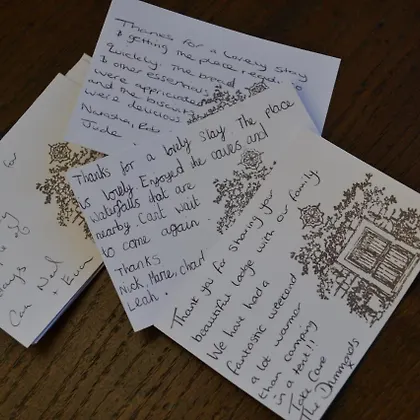 Thanks for a lovely stay
& getting the place ready so
quickly. The bread
& other essentials
were appriciated
and the biscuits
were delicious
Natasha, Rob
Jude.
Thanks for a lovely stay. The place
is lovely. Enjoyed the caves and
waterfalls that are
nearby. Cant wait
to come again.
Thanks
Nick, Marie, Charl
Leah.
Thank you for sharing your
beautiful lodge with our family.
We have had a
fantastic weekend
a lot warmer
than camping
in a tent!!
Take Care
The Drummonds
x
for
days
+ Euan